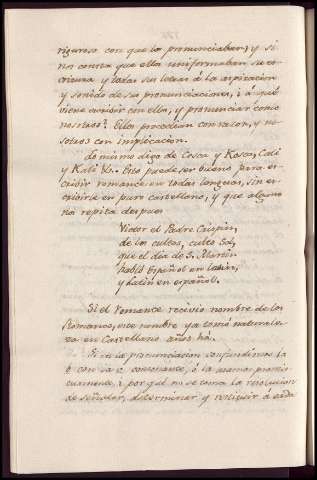 rigurosa con que la pronunciaban; y si
nos consta que ellos uniformaban su es-
critura y todas sus letras á la aspiracion
y sonido de su pronunciacion, ¿ á qué
viene escribir con ellos, y pronunciar como
nosotros? Ellos procedian con razon, y no-
sotros con implicacion.
Lo mismo digo de Cosca y Kosca, Cali
y Kali &c. Esto puede ser bueno para es-
cribir romance en todas lenguas, sin es-
cribirle en puro castellano, y que alguno
no repita despues
Victor el Padre Crispin,
de los cultos, culto Sol,
que el dia de S. Martin
habló Español en latin,
y latin en español.
Si el romance recivió nombre de los
Romanos, este nombre ya tomó naturale-
za en Castellano años há.
Si en la pronunciacion confundimos la
b con la v consonante, ó la usamos promis-
cuamente, ¿ por qué no se toma la resolucion
de señalar, determinar y restituir á cada